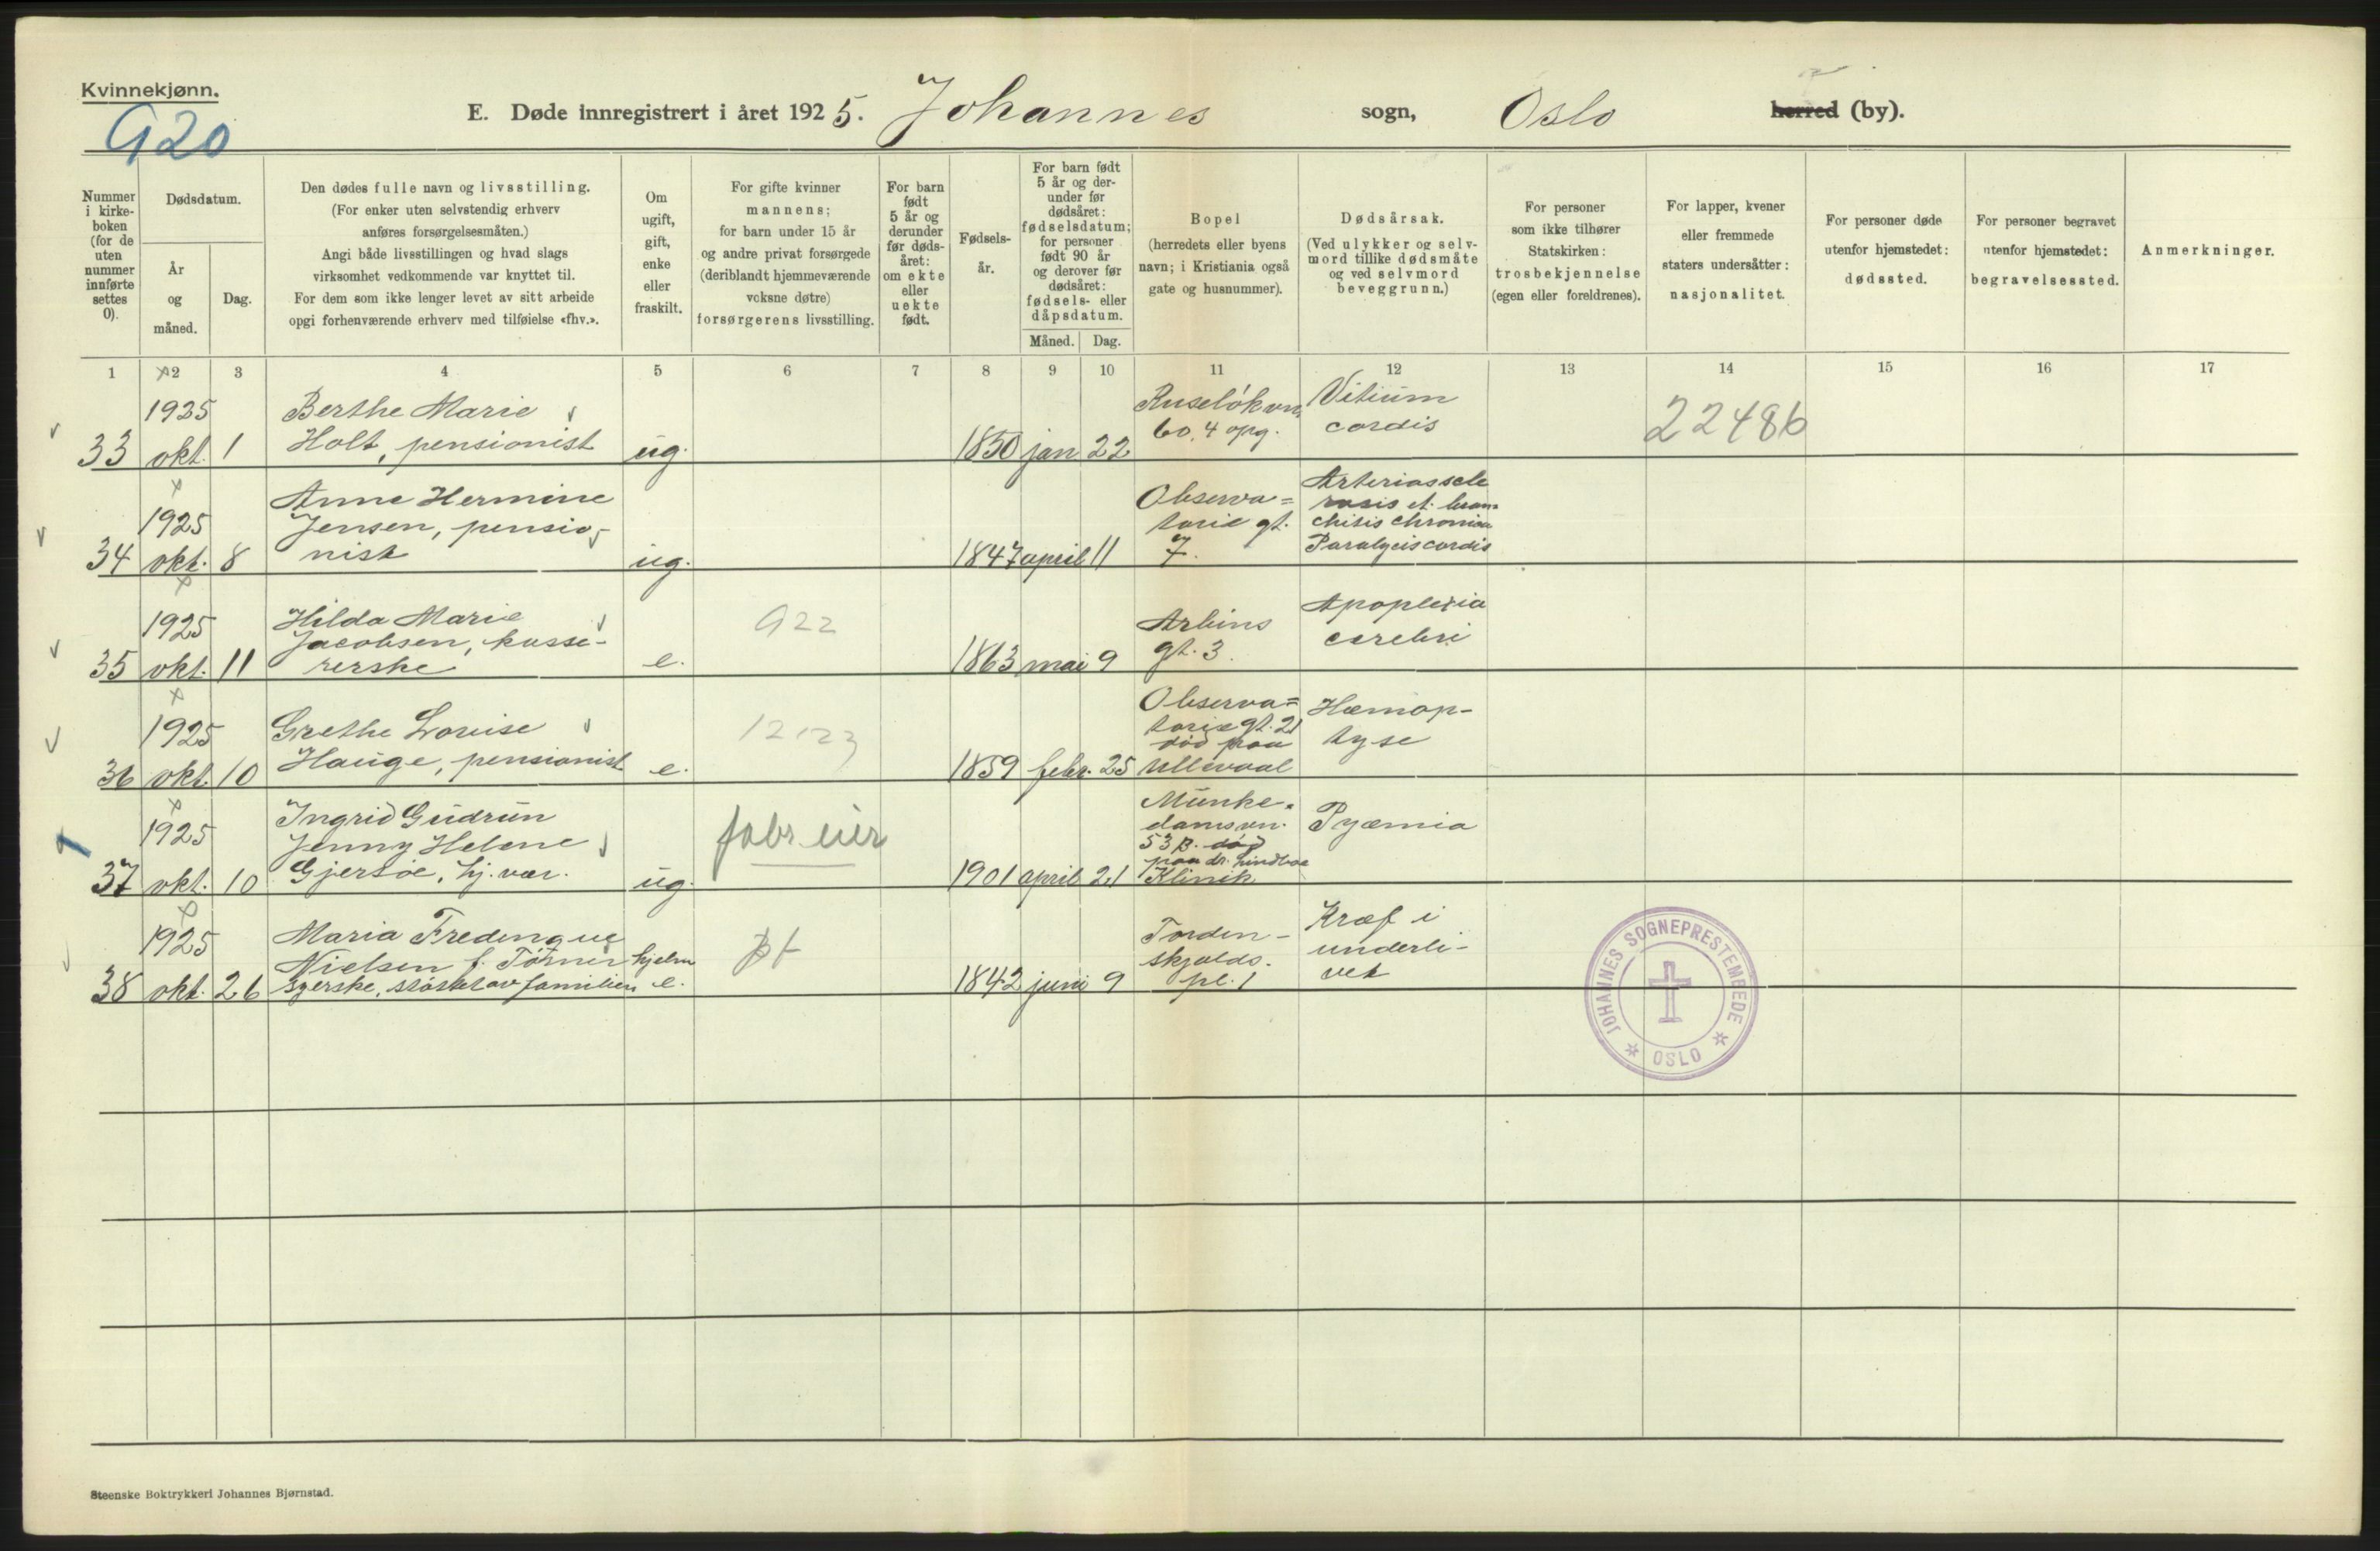 Kvinnekjønn.
920
E. Døde innregistrert i året 1925. Johannes sogn, Oslo herred (by).
Nummer i kirke- boken (for de uten nummer innførte settes 0).
Dødsdatum.
År og måned.
Dag.
Den dødes fulle navn og livsstilling.
(For enker uten selvstendig erhverv
anføres forsørgelsesmåten.)
Angi både livsstillingen og hvad slags
virksomhet vedkommende var knyttet til.
For dem som ikke lenger levet av sitt arbeide
opgi forhenværende erhverv med tilføielse «fhv.».
Om
ugift,
gift,
enke
eller
fraskilt.
For gifte kvinner
mannens;
for barn under 15 år
og andre privat forsørgede
(deriblandt hjemmeværende
voksne døtre)
forsørgerens livsstilling.
For barn
født
5 år og
derunder
før døds-
året:
om ekte
eller
uekte
født.
Fødsels-
år.
For barn født
5 år og der-
under før
dødsåret:
fødselsdatum;
for personer
født 90 år
og derover før
dødsåret:
fødsels- eller
dåpsdatum.
Måned. Dag.
Bopel
(herredets eller byens
navn; i Kristiania også
gate og husnummer).
Dødsårsak.
(Ved ulykker og selv-
mord tillike dødsmåte
og ved selvmord
beveggrunn.)
For personer
som ikke tilhører
Statskirken:
trosbekjennelse
(egen eller foreldrenes).
For lapper, kvener
eller fremmede
staters undersåtter:
nasjonalitet.
For personer døde
utenfor hjemstedet:
dødssted.
For personer begravet
utenfor hjemstedet:
begravelsessted.
Anmerkninger.
1 2 3 4 5 6 7 8 9 10 11 12 13 14 15 16 17
33
1925
okt. 1
Berthe Marie
Holt, pensionist
ug.
1850 jan 22
Ruseløkvn.
60, 4 opg.
Vitium
cordis
22486
34
1925
okt. 8
Anne Hermine
Jensen, pensio-
nist
ug.
1847 april 11
Observa=
torie gt.
7.
Arteriosscle
rosis et bron-
chitis chronica
Paralysis cordis
35
1925
okt. 11
Hilda Marie
Jacobsen, kasse-
rerske
e.
922
1863 mai 9
Arbins
gt. 3.
Apoplexia
cerebri
36
1925
okt. 10
Grethe Lovise
Hauge, pensionist
e.
12123
1859 febr. 25
Observa=
torie gt. 21
død paa
Ullevaal
Hæmop-
tyse
37
1925
okt. 10
Ingrid Gudrun
Jenny Helene
Gjersøe, hj. vær.
ug.
fabr eier
1901 april 21
Munke-
damsvn.
53 B. død
paa dr.
Klinik
Pyæmia
38
1925
okt. 26
Maria Frederique
Nielsen f. Tørner hjelm
syerske, støttet av familien
e.
1842 juni 9
Torden-
skjolds.
pl. 1
Kræf i
underli-
vet
JOHANNES SOGNEPRESTEMBEDE
OSLO
Steenske Boktrykkeri Johannes Bjørnstad.